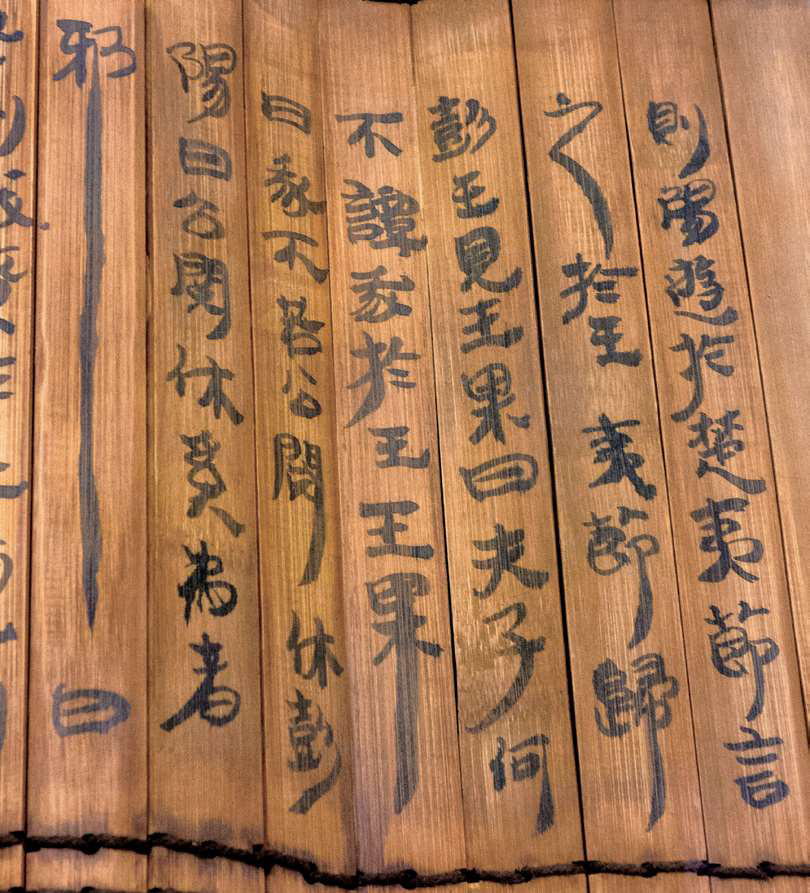 則陽遊於楚夷節言
之於王夷節歸
彭王見王果曰夫子何
不譚我於王王果
曰我不若公閱休彭
陽曰公閱休奚為者
邪曰